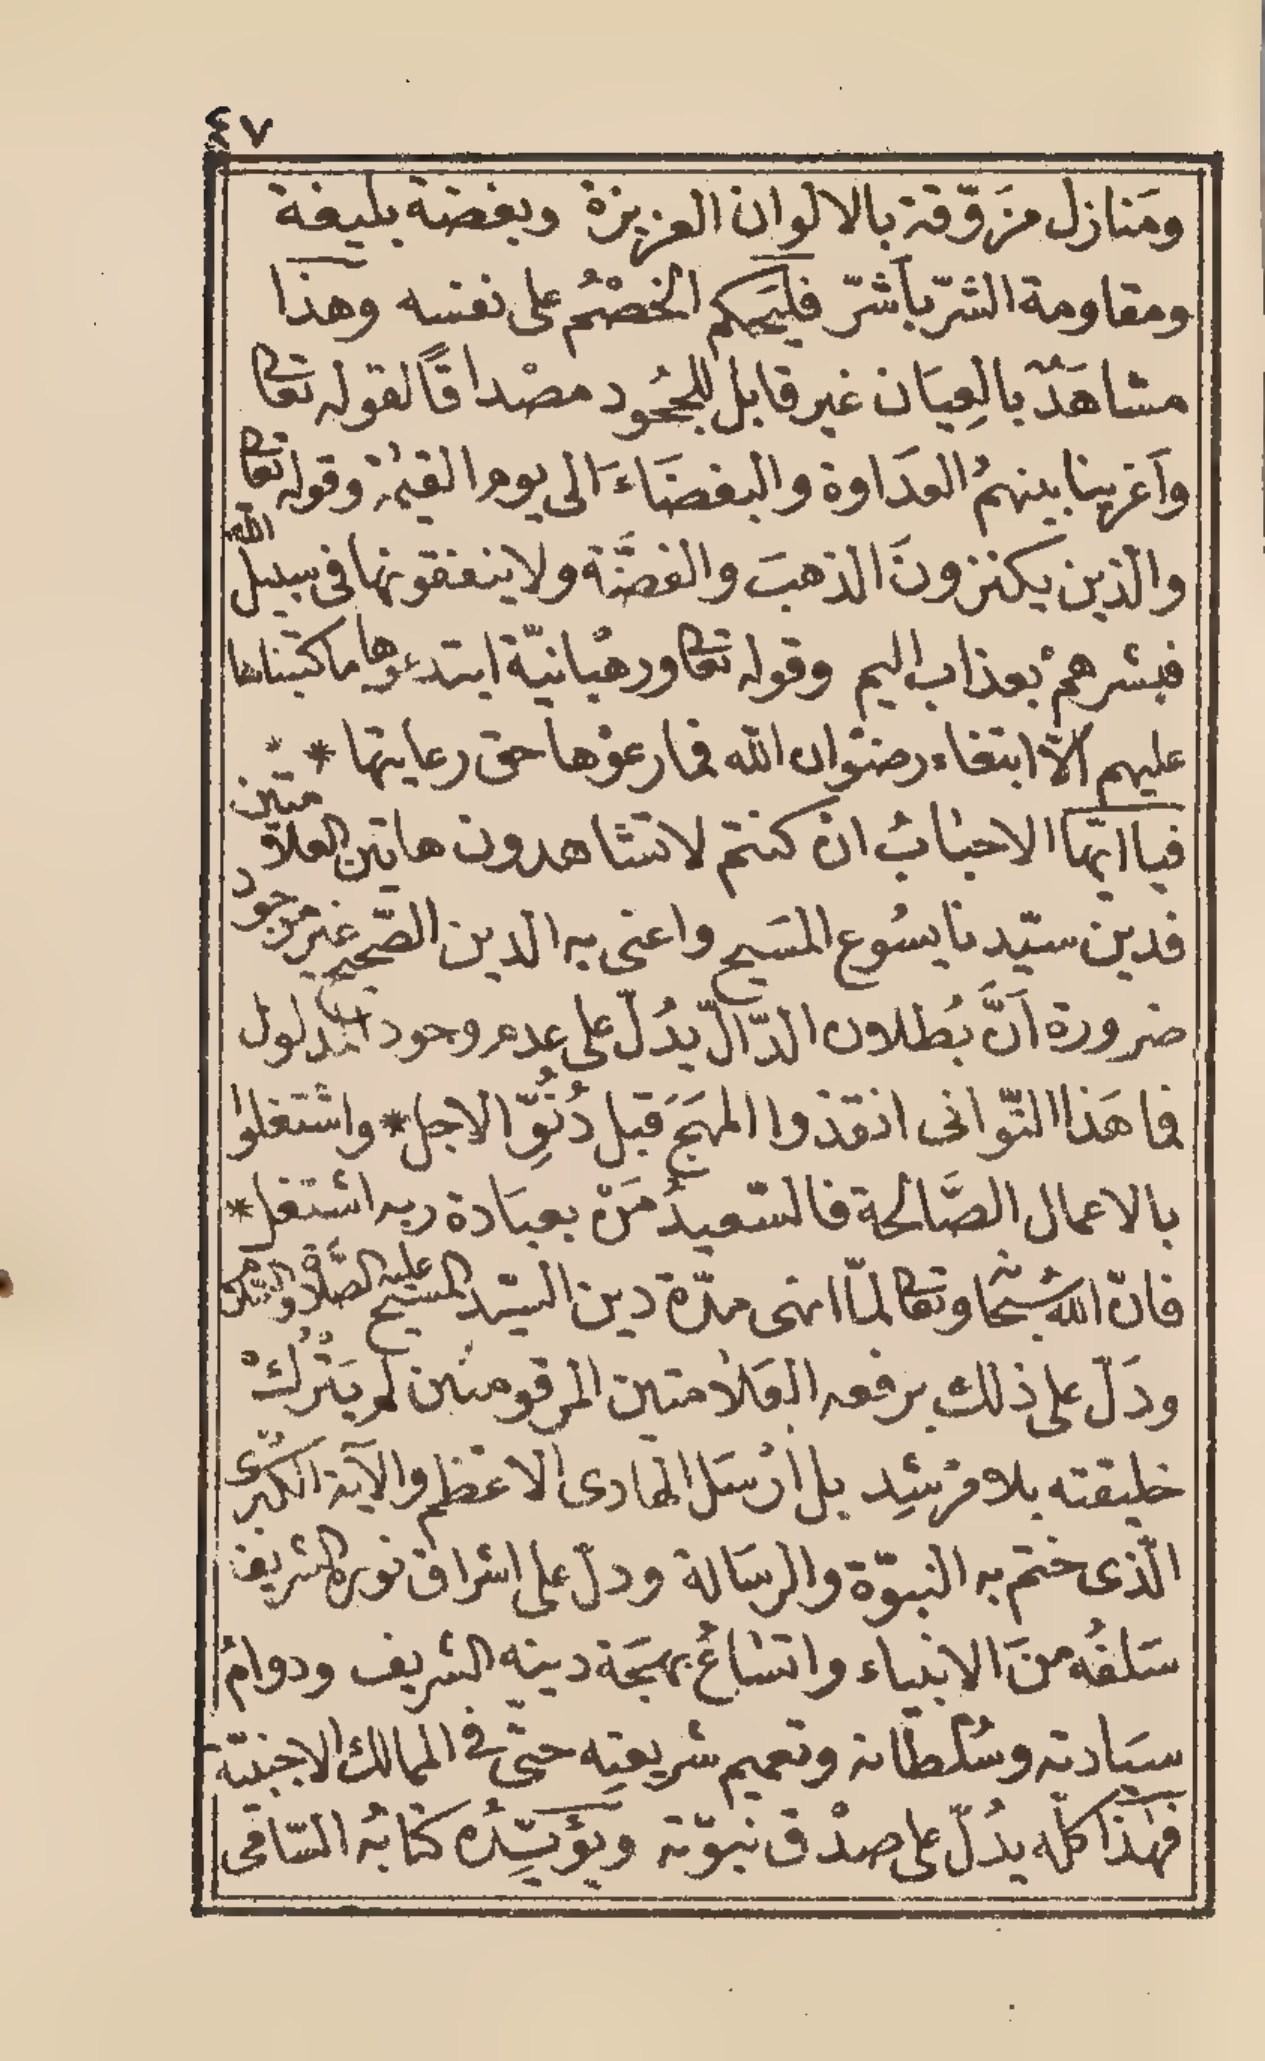 ٤٧
ومَنازل مزَوّقة بالالوان العزيزة وبغضة بليغة
ومقاومة الشرّ بأشرّ فليَحكم الخصْمُ على نفسه وهذا
مشاهَدٌ بالعِيَان غير قابل للجحُود مصْداقًا لقوله تعا
وَاَغرينا بينهمُ العدَاوة والبغضَاءَ الى يوم القيٰمة وقوله تعا
والّذين يكنزونَ الذهبَ والفضَّة ولا ينفقونها فى سبيل الله
فبشرهمْ بعذاب اليم وقوله تعا ورهْبانيّة ابتدعوها ما كتبناها
عليهم الاّ ابتغاء رضوٰان الله فما رعوْها حق رعايتها *
فيا ايّها الاحبٰابُ ان كنتم لا تشاهدون هاتين العلامتين
فدين سيّدنا يسُوع المسَيح واعنى به الدين الصّحيح غير موجود
ضرورة اَنَّ بُطلان الدّالّ يدُلّ على عدم وجود المدلول
فما هَذا التّوانى انقذوا المهَج قَبل دُنُوِّ الاجل * واشتغلوا
بالاعمال الصَّالحة فالسّعيدُ مَنْ بعبَادة ربه اشتغل *
فانّ الله سُبحٰانه وتعا لمّا انهى مدّة دين السيّد المسيح عليه الصَّلاة والسّلام
ودَلّ على ذلك برفعه العَلامتين المرقومتين لم يَتْرُكْ
خليقته بلا مرْشِد بل ارْسَل الهادى الاعظم والآية الكبْرى
الّذى ختم به النبوّة والرسَالة ودلّ على اشراق نوره الشريف
سَلفُه منَ الانبياء واتساعُ بهجَة دينه الشريف ودوامُ
سيَادته وسُلطانه وتعميم شريعتِه حتّى فى الممالك الاجنبيّة
فهٰذا كلّه يدُلّ على صدْق نبوّته ويؤيّدُه كتابُه السّامى